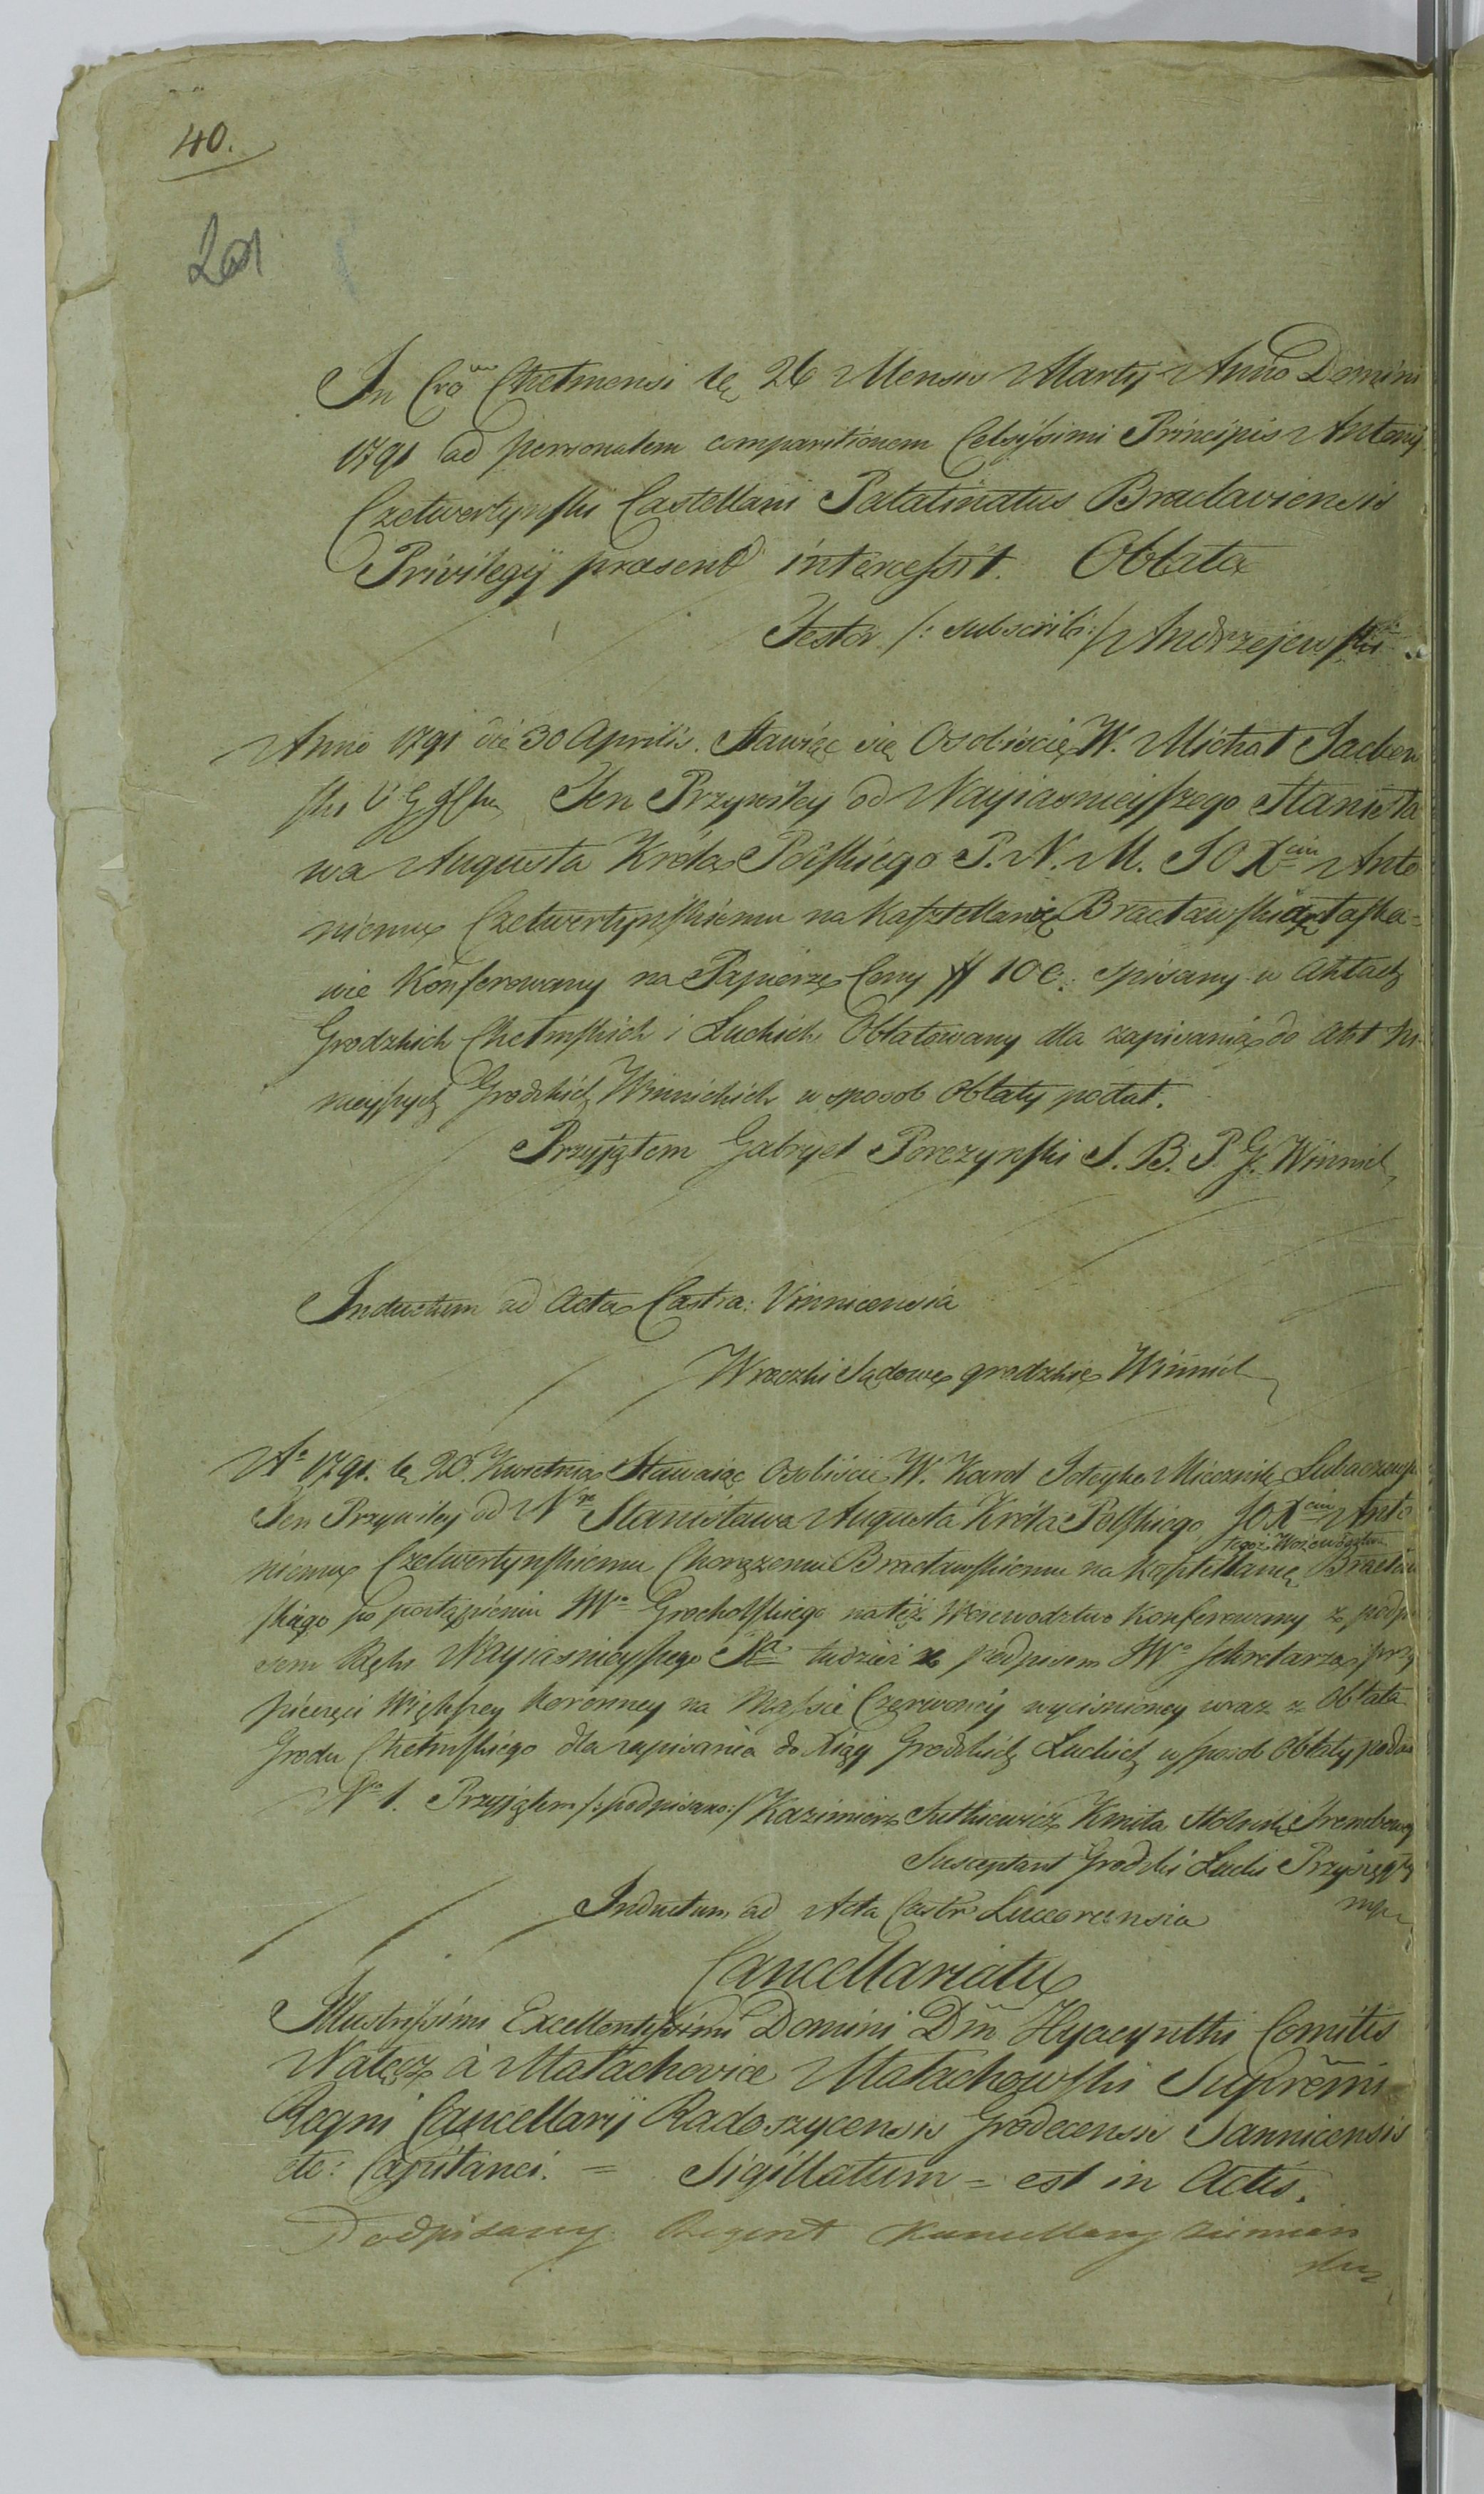 40.
In Crâ Chelmensi die 26 Mensis Martij Anno Domini
1791 ad personalem comparitionem Celsissimi Principis Antonij
Czetwertynski Castellani Palatinatus Braclaviensis
Privilegij præsend intercessit. Oblata
Testor /: subscrib :/ Andrzejewski
Anno 1791 die 30 Aprilis. Stawiąc się Osobiscie W. Michał
Ten Przywiley od Nayiasnieyszego Stanisła
wa Augusta Króla Polskiego P. N. M. JO Xciu Anto
niemu Czetwertynskiemu na Kasztellanię Bracławską łaska=
wie Konferowany na Papierze Ceny # 100. spisany w Aktach
Grodzkich Chełmskich i Luckich Oblatowany dla zapisania do Akt Ni
nieyszych Grodzkich Winnickich w sposob Oblaty podał.
Przyjąłem Gabryel Porczynski S. B. P. G. Winnick
Inductum ad Acta Castra: Vinnicensia
Wroczki Sądowe grodzkie Winnick
Aº 1791. d. 20. Kwietnia Stawaiąc Osobiscie W. Karol Soteyko Miecznik Lubaczewsk
Ten Przywiley od Ngo Stanisława Augusta Króla Polskiego JO Xciu Anto
niemu Czetwertynskiemu Chorążemu Bracławskiemu na Kasztellanię tegoż Województwa Bracław
skiego po postąpieniu JWo Grocholskiego na też Woiewodztwo Konferowany z podpi
sem Ręki Nayiasnieyszego Kla tudzież z podpisem JWo Sekretarza przy
pieczęci Większey Koronney na Massie Czerwoney wycisnioney wraz z Oblata
Grodu Chełmskiego dla wpisania do Xiąg Grodzkich Luckich w sposob Oblaty podał
No 1. Przyjąłem /: podpisano :/ Kazimierz Sutkiewicz Kmita Stolnik Trembowel
Susceptant Grodzki Lucki Przysięgły
mp
Inductum ad Acta Castr Luceorensia
Cancellariatu
Illustrissimi Excellentissimi Domini Dnî Hyacynthi Comitis
Nałęcz à Małachovice Małachowski Suprêmi
Regni Cancellarij Radoszycensis Grodecensis Sannicensis
etc: Capitanei. = Sigillatum = est in Actis.
Podpisany Regent Kancellaryi Ziemian